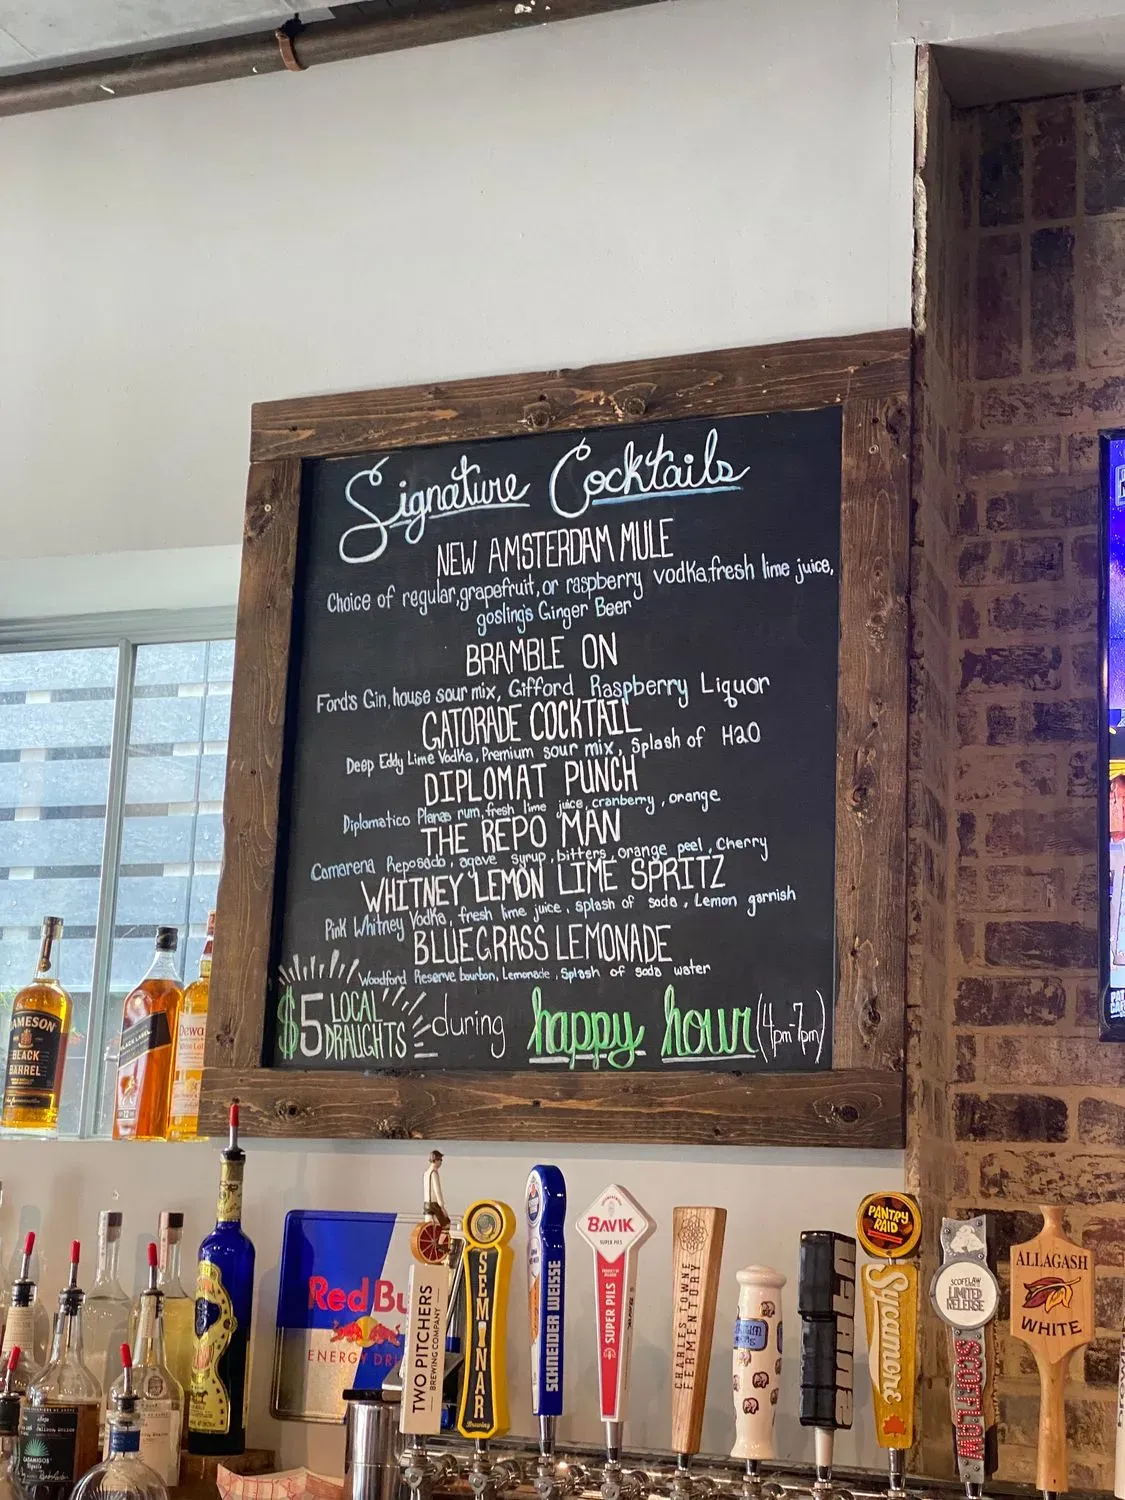 Signature Cocktails
NEW AMSTERDAM MULE
Choice of regular, grapefruit, or raspberry vodka, fresh lime juice,
goslings Ginger Beer
BRAMBLE ON
Ford's Gin, house sour mix, Gifford Raspberry Liquor
GATORADE COCKTAIL
Deep Eddy Lime Vodka, Premium sour mix, Splash of H2O
DIPLOMAT PUNCH
Diplomatico Planas rum, fresh lime juice, cranberry, orange
THE REPO MAN
Camarena Reposado, agave syrup, bitters, orange peel, Cherry
WHITNEY LEMON LIME SPRITZ
Pink Whitney Vodka, fresh lime juice, splash of soda, Lemon garnish
BLUEGRASS LEMONADE
Woodford Reserve bourbon, Lemonade, Splash of soda water
$5 LOCAL DRAUGHTS during happy hour (4pm-7pm)
JAMESON
BLACK
BARREL
BLACK LABEL
Dewa
Red Bu
ENERGY DR
TWO PITCHERS
BREWING COMPANY
SEMINAR
Brewing
SCHNEIDER WEISSE
BAVIK
SUPER PILS
SUPER PILS
CHARLES TOWNE
FERMENTORY
PANTRY
RAID
Sycamore
SCOFFLAW
LIMITED
RELEASE
SCOFFLAW
ALLAGASH
WHITE
CASAMIGOS